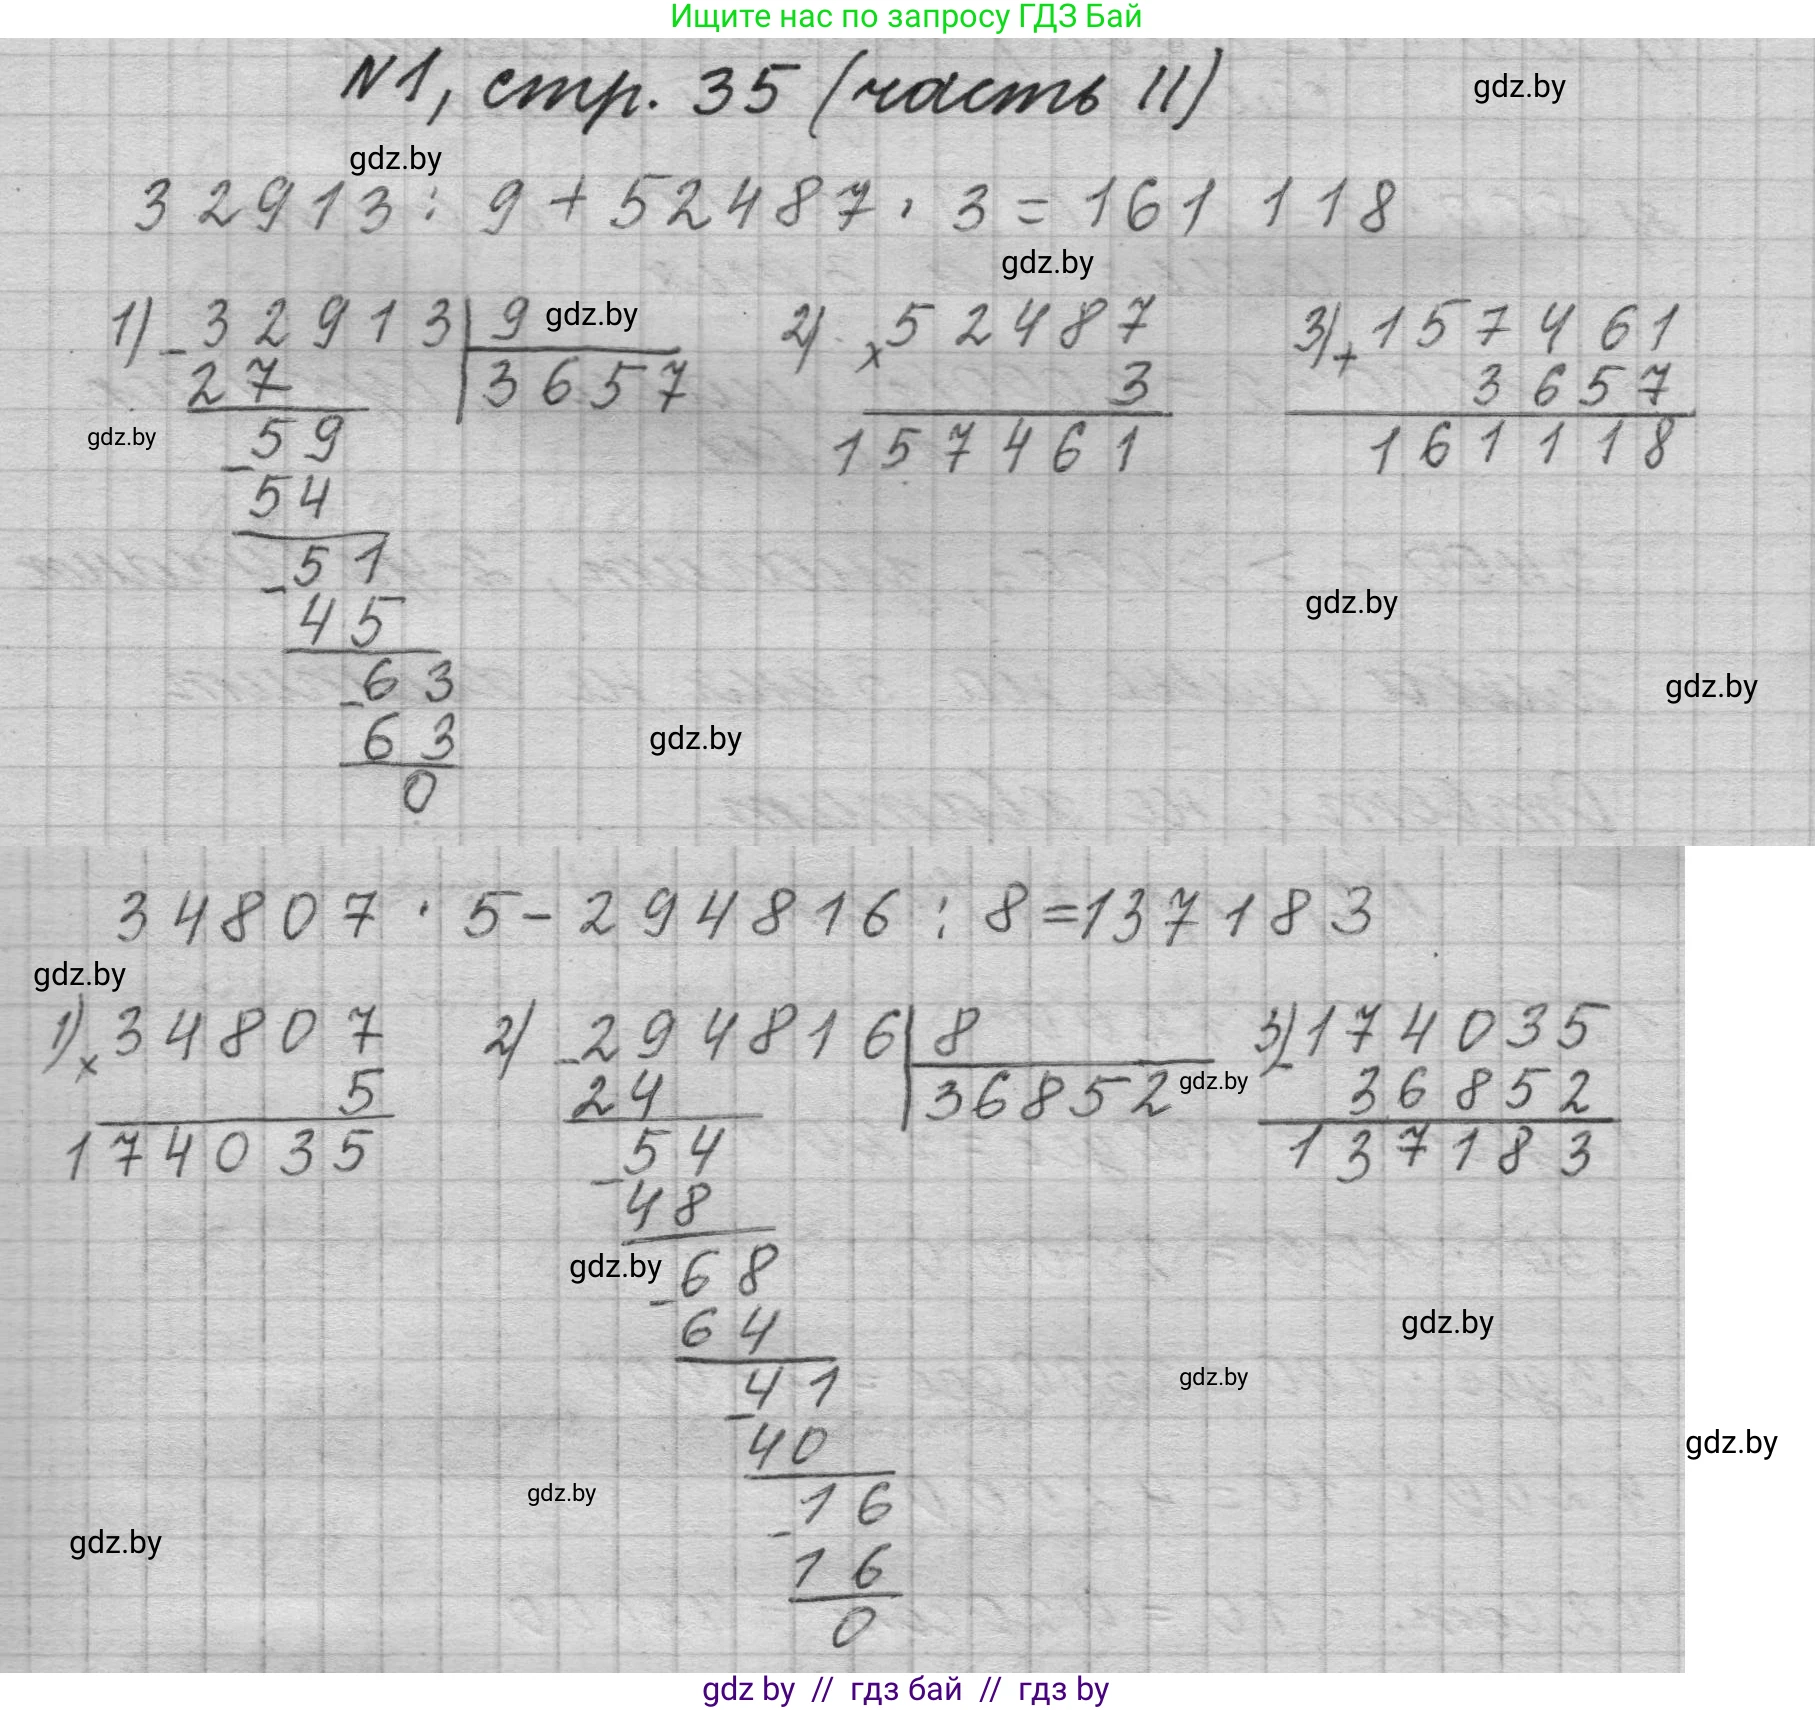 Ищите нас по запросу ГДЗ Бай
N1, стр. 35 (часть II)
gdz.by
gdz.by
32913 : 9 + 52487 · 3 = 161 118
gdz.by
1) - 32913 | 9
27
3657
gdz.by
- 59
54
- 51
45
- 63
63
0
gdz.by
2) x 52487
3
157461
3) + 157461
3657
161118
gdz.by
gdz.by
gdz.by
34807 · 5 - 294816 : 8 = 137183
gdz.by
1) x 34807
5
174035
2) - 294816 | 8
24
36852
gdz.by
- 54
48
gdz.by
- 68
64
- 41
40
- 16
16
0
3) - 174035
36852
137183
gdz.by
gdz.by
gdz.by
gdz.by
gdz.by
gdz by // гдз бай // гдз by